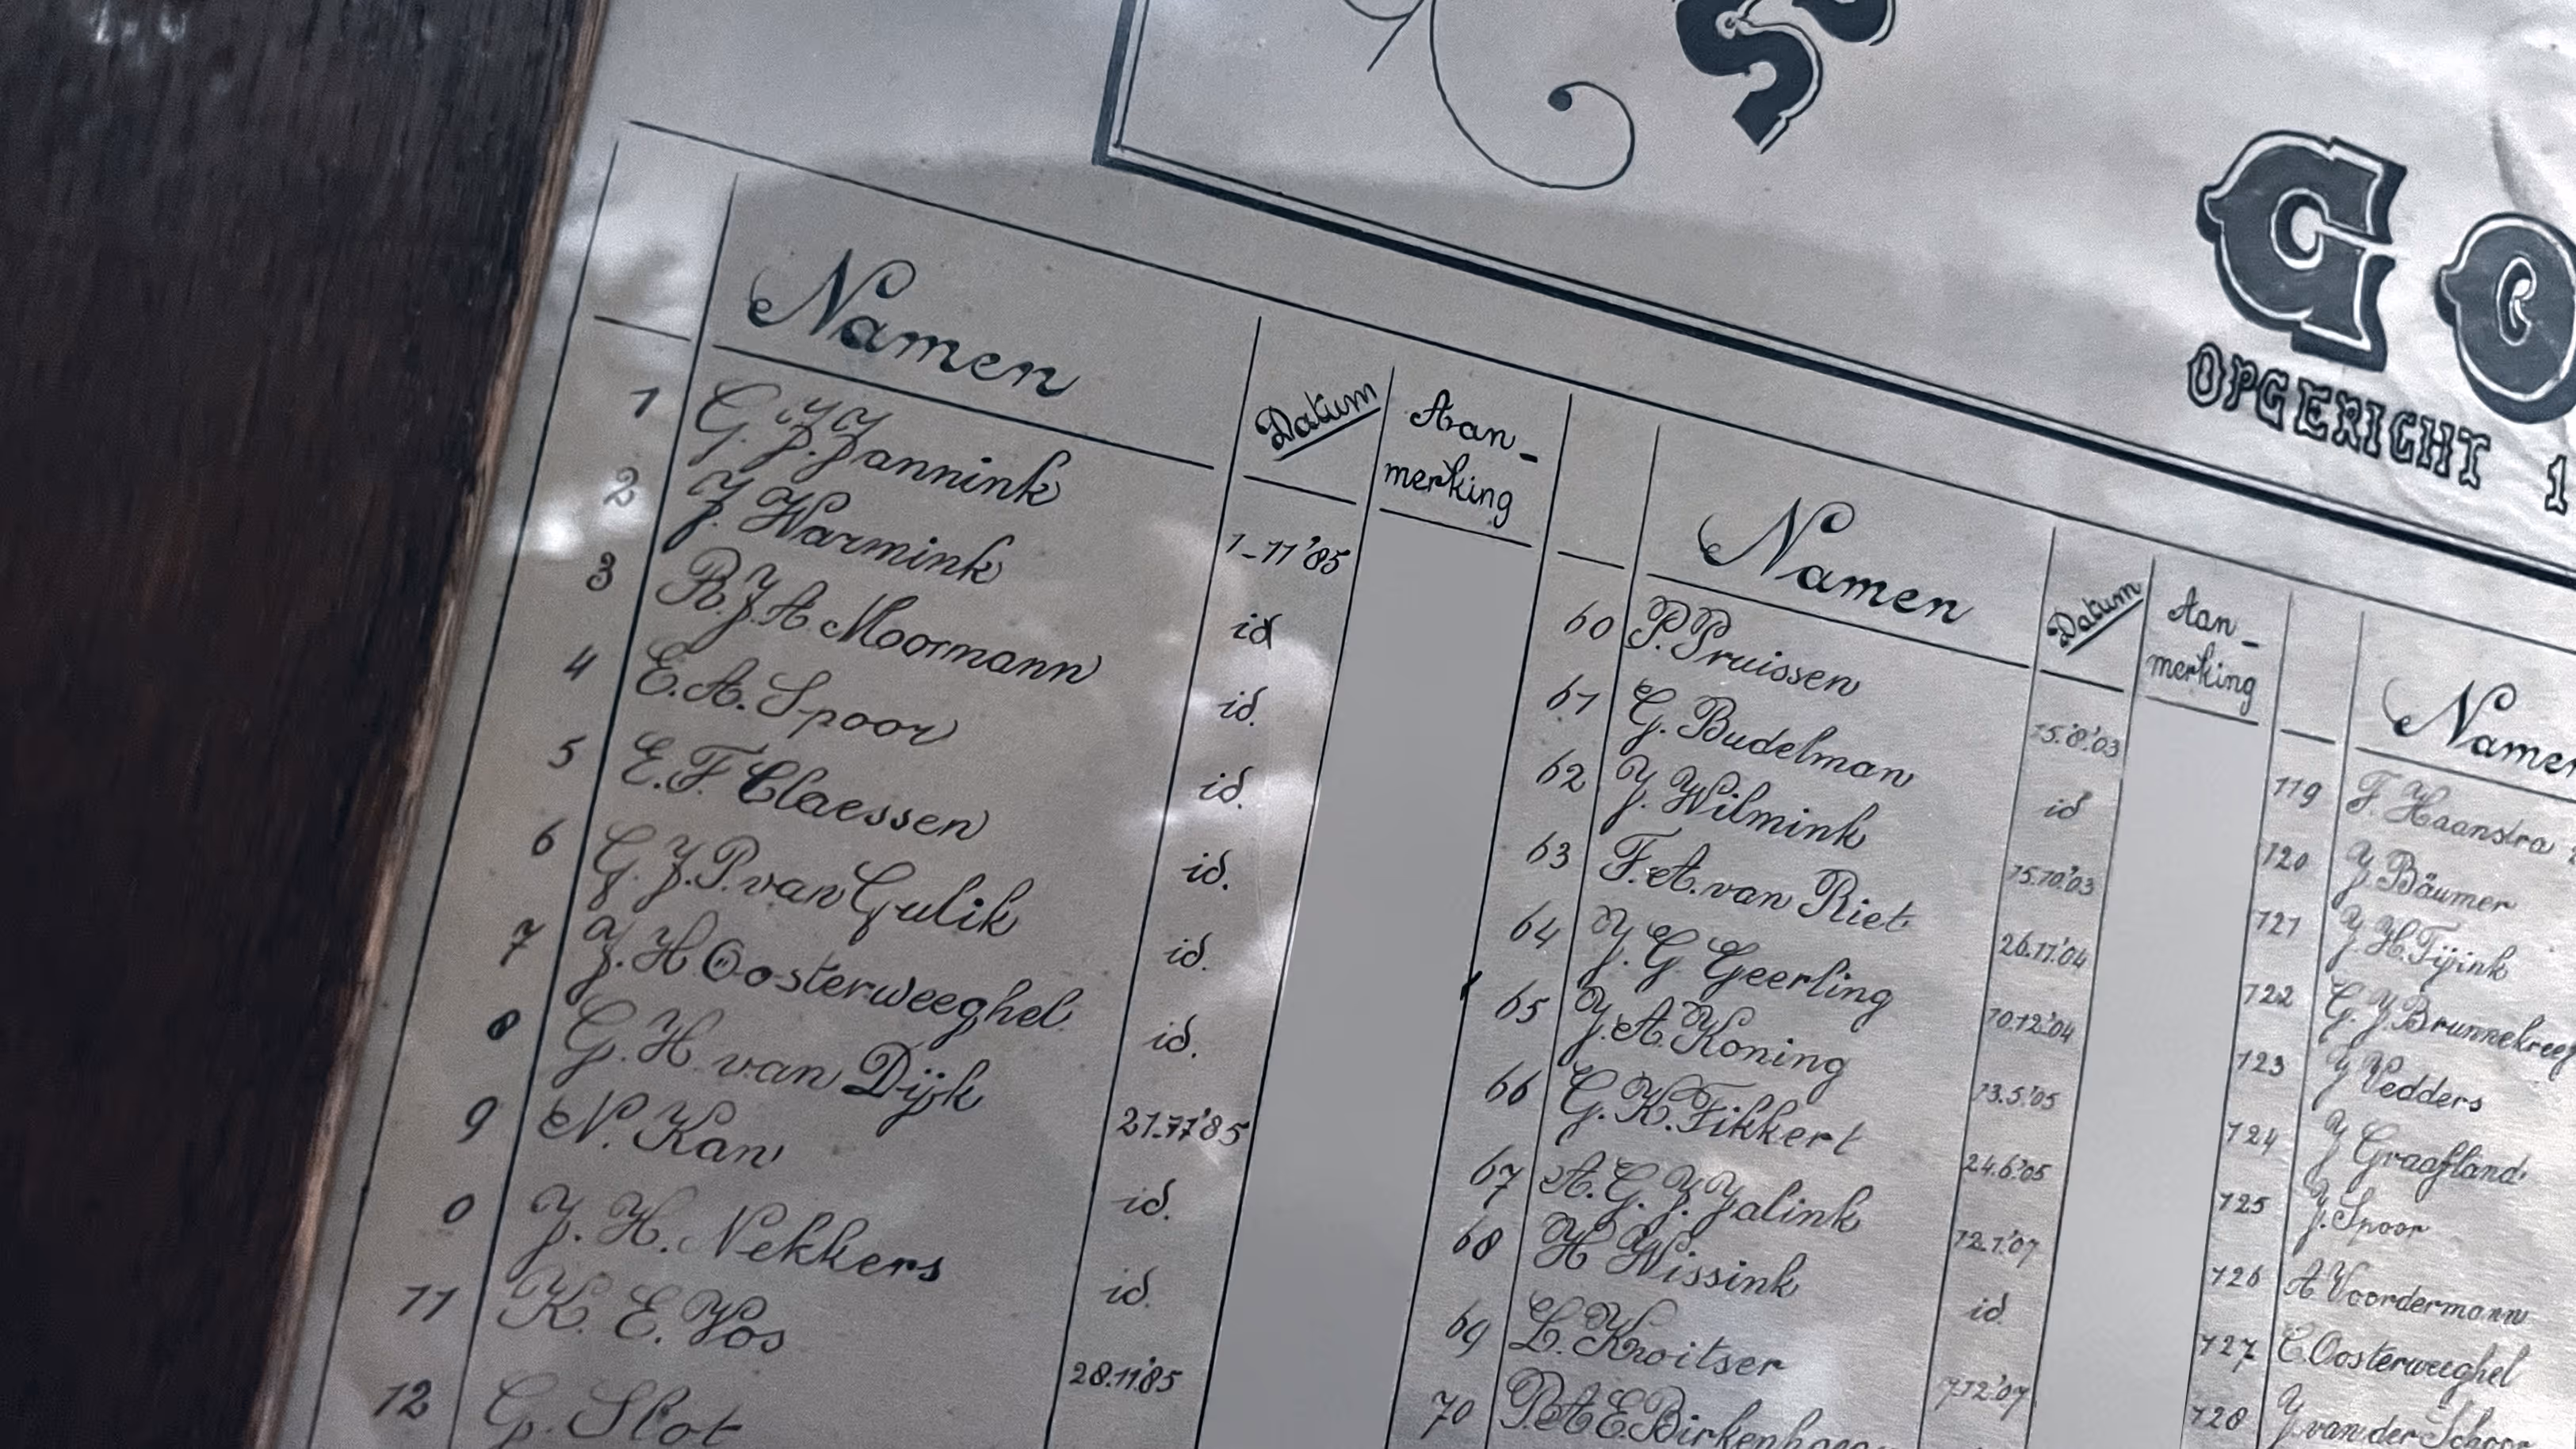 GO
OPGERICHT 1
Namen Datum Aan-merking
1 G.J.Jannink 1-11'85
2 J. Warmink id
3 R.J.A. Moormann id.
4 E.A. Spoor id.
5 E.F. Claessen id.
6 G.J.P. van Gulik id.
7 J.H Oosterweeghel id.
8 G.H van Dijk 21.11'85
9 N. Kan id.
0 J.H. Nekkers id.
11 K.E. Vos 28.11.'85
12 G. Slot
Namen Datum Aan-merking
60 P. Pruissen 15.'8.'03
61 G. Budelman id
62 J. Wilmink 15.10.'03
63 F.A. van Riet 26.11.'04
64 J.G Geerling 10.12.'04
65 J.A. Koning 13.5.'05
66 G.K. Fikkert 24.6.'05
67 A.G.J. Jalink 12.1.'07
68 H Wissink id
69 L. Kroitser 7.12.'07
70
Namen
119 F. Haanstra
120 J. Bäumer
121 J H. Tijink
122 G.J. Brunnekreef
123 J Vedders
124 J Graafland
125 J. Spoor
126 A Voordermann
127 C. Oosterweeghel
128 J. van der Schoor